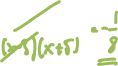 (x-5)(x+5) = -1/8